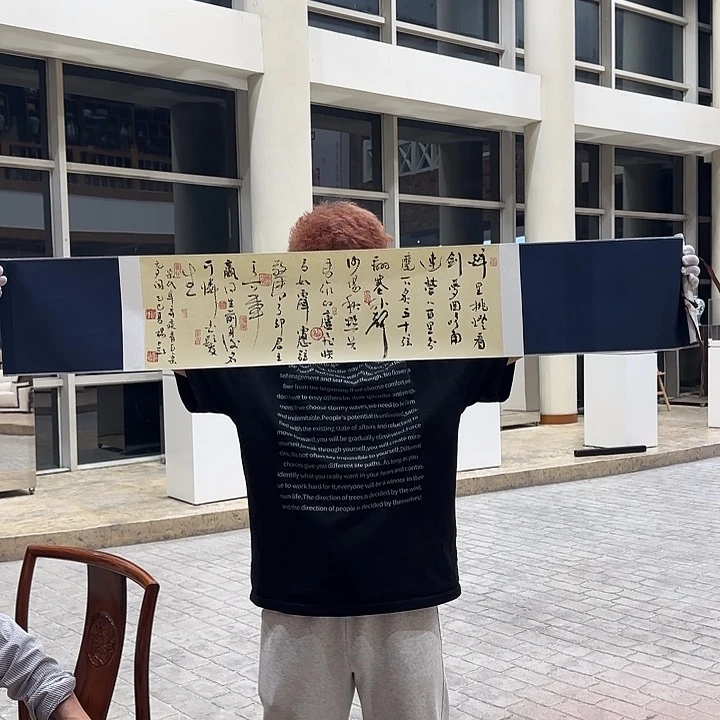 醉里挑燈看
劍夢回吹角
連營八百里分
麾下炙五十弦
翻塞外聲
沙場秋點兵
馬作的盧飛快
弓如霹靂弦
驚了卻君王
天下事
贏得生前身後名
可憐白發
生
宋代辛棄疾
乙巳夏
self anagement and self-break through. No flower a
fever from the beginning. If we choose comfort, w
don't have to envy others for their splendor and en
ment. If we choose stormy waves, we need to be firm
and indomitable. People's potential is unlimited,
fied with the existing state of affairs and reluctant to
move forward, you will be gradually eliminated. Force
yourself, break through yourself, you will create mira
cles, its not often say impossible to yourself. Different
choices give you different life paths. As long as you
identify what you really want in your heart and contin
ue to work hard for it, everyone will be a winner in their
own life. The direction of trees is decided by the wind,
and the direction of people is decided by themselves!